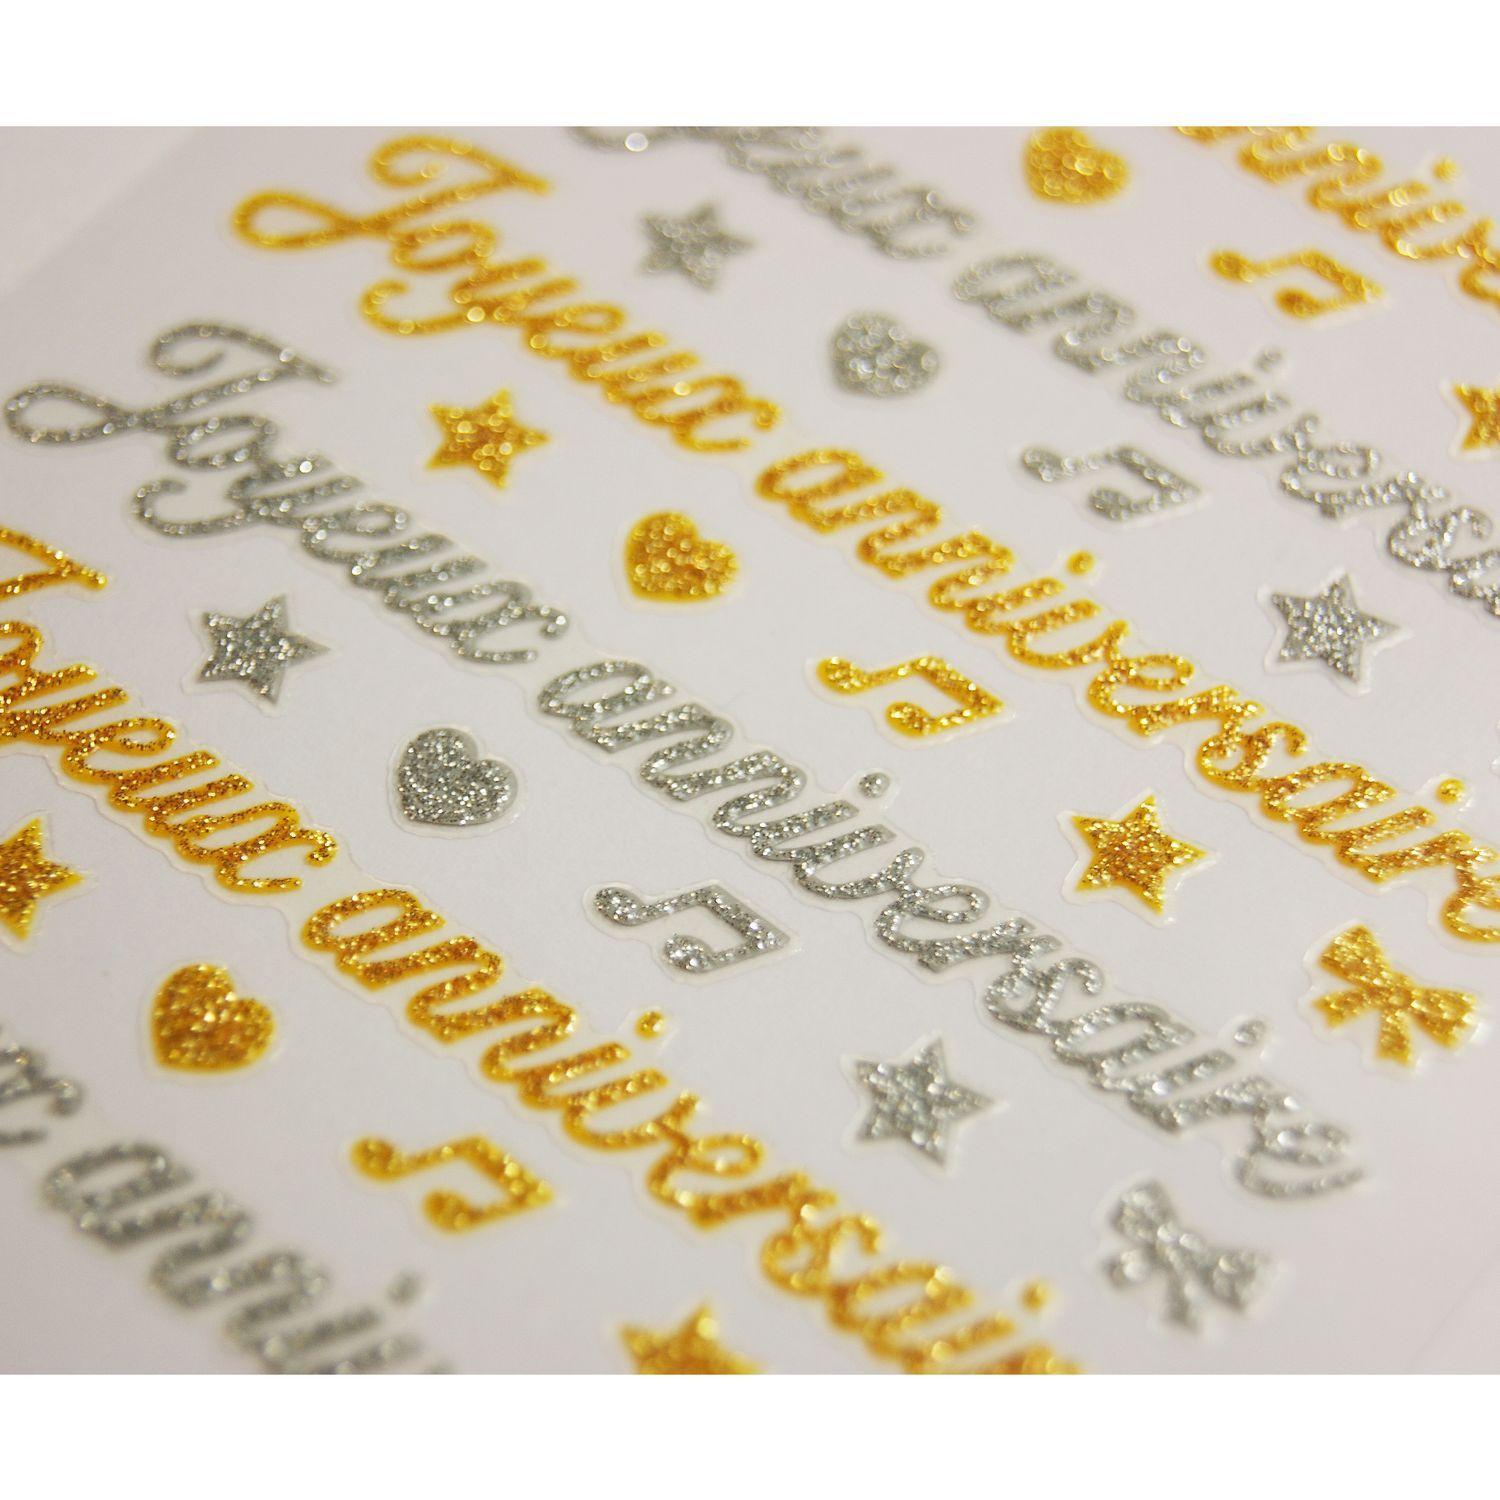 anniversaire
Joyeux anniversaire
Joyeux anniversaire
Joyeux anniversaire
Joyeux anniversaire
anni